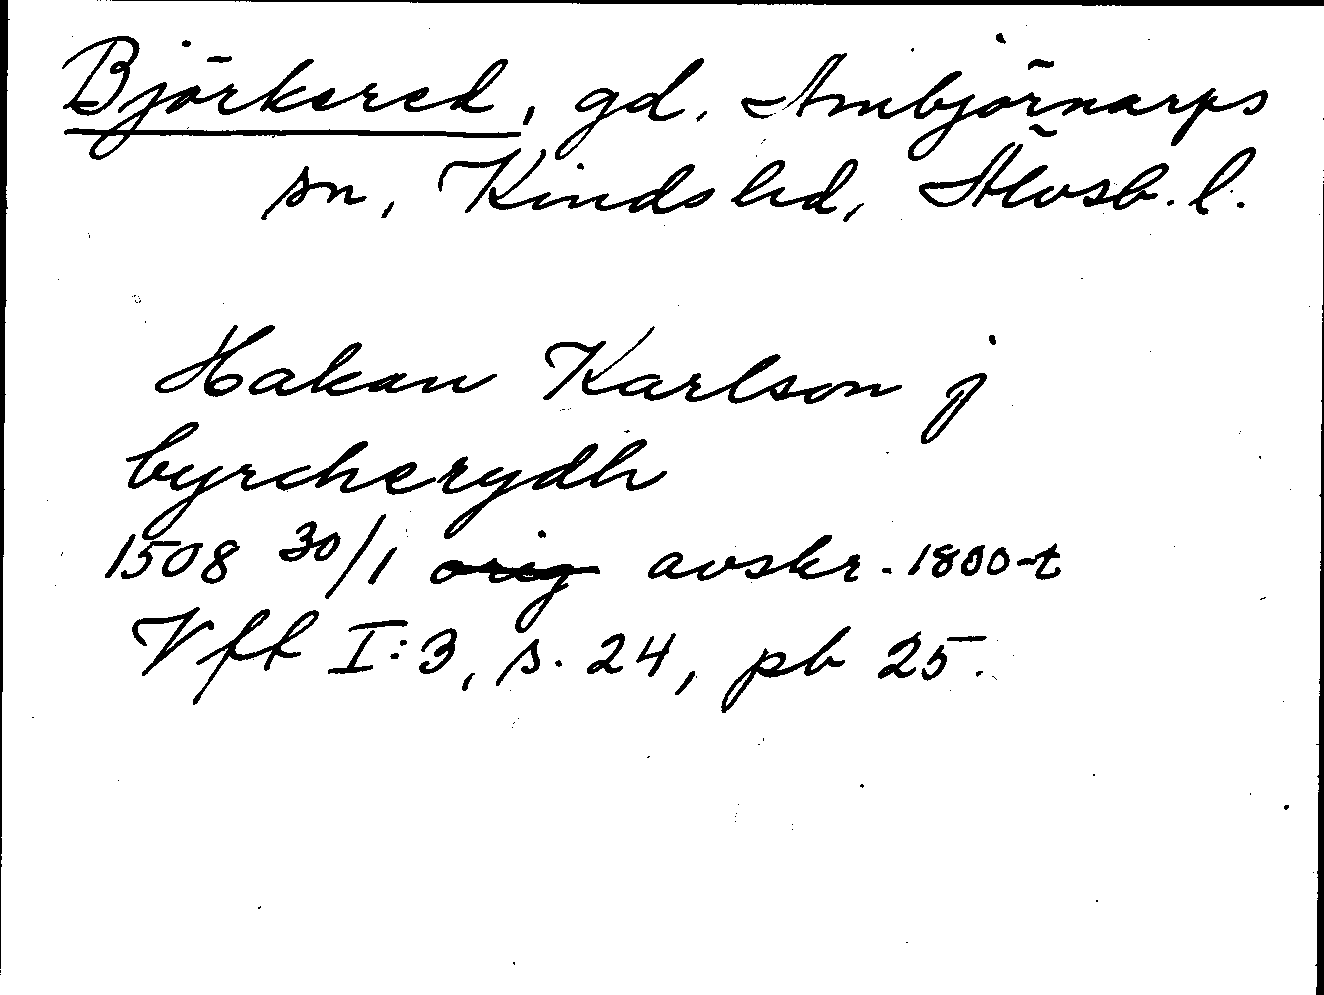 Björkered, gd. Ambjörnarps
sn, Kinds hd, Älvsb. l.
Hakan Karlson j
byrcherydh
1508 30/1 orig avskr. 1800-t
Vff I:3, s. 24, pb 25.